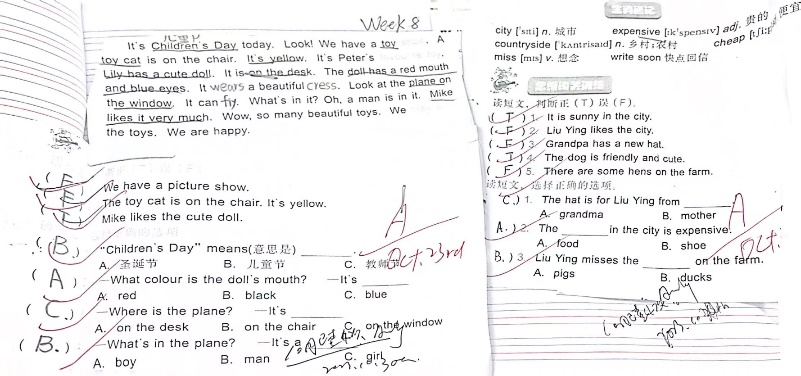 Week 8
儿童节
It's Children's Day today. Look! We have a toy
toy cat is on the chair. It's yellow. It's Peter's
Lily has a cute doll. It is on the desk. The doll has a red mouth
and blue eyes. It wears a beautiful dress. Look at the plane on
the window. It can fly. What's in it? Oh, a man is in it. Mike
likes it very much. Wow, so many beautiful toys. We
the toys. We are happy.
(F) We have a picture show.
(F) The toy cat is on the chair. It's yellow.
Mike likes the cute doll.
(B.) "Children's Day" means(意思是)
A. 圣诞节 B. 儿童节 C. 教师节
(A) —What colour is the doll's mouth? —It's
A. red B. black C. blue
(C.) —Where is the plane? —It's
A. on the desk B. on the chair C. on the window
(B.) —What's in the plane? —It's a
A. boy B. man C. girl
A
Oct. 23rd
city ['sɪti] n. 城市 expensive [ɪk'spensɪv] adj. 贵的 便宜
countryside ['kʌntrisaɪd] n. 乡村;农村 cheap
miss [mɪs] v. 想念 write soon 快点回信
读短文，判断正（T）误（F）。
(T) 1. It is sunny in the city.
(F) 2. Liu Ying likes the city.
(F) 3. Grandpa has a new hat.
(T) 4. The dog is friendly and cute.
(F) 5. There are some hens on the farm.
读短文，选择正确的选项。
C.) 1. The hat is for Liu Ying from
A. grandma B. mother
A.) 2. The in the city is expensive.
A. food B. shoe
B.) 3. Liu Ying misses the on the farm.
A. pigs B. ducks
A
Oct.